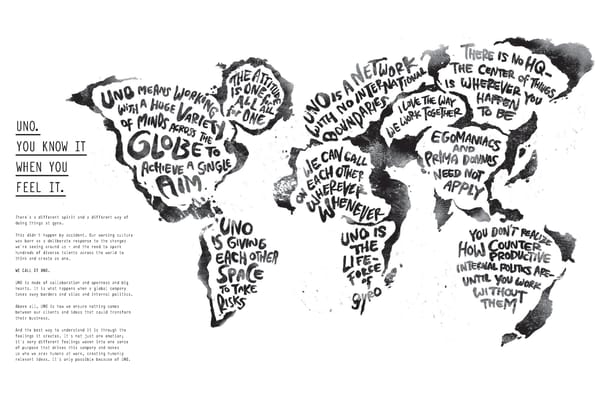 UNO.
YOU KNOW IT
WHEN YOU
FEEL IT.
There's a different spirit and a different way of
doing things at gyro.
This didn't happen by accident. Our working culture
was born as a deliberate response to the changes
we're seeing around us - and the need to spark
hundreds of diverse talents across the world to
think and create as one.
WE CALL IT UNO.
UNO is made of collaboration and openness and big
hearts. It is what happens when a global company
takes away borders and silos and internal politics.
Above all, UNO is how we ensure nothing comes
between our clients and ideas that could transform
their business.
And the best way to understand it is through the
feelings it creates. It's not just one emotion;
it's many different feelings woven into one sense
of purpose that drives this company and makes
us who we are: humans at work, creating humanly
relevant ideas. It's only possible because of UNO.
UNO MEANS WORKING
WITH A HUGE VARIETY
OF MINDS ACROSS THE
GLOBE TO
ACHIEVE A SINGLE
AIM.
THE ATTITUDE
IS ONE
ALL
for ONE
UNO IS A NETWORK
WITH NO INTERNATIONAL
BOUNDARIES
I LOVE THE WAY
WE WORK TOGETHER
THERE IS NO HQ-
THE CENTER OF THINGS
IS WHEREVER YOU
HAPPEN
TO BE
EGOMANIACS
AND
PRIMA DONNAS
NEED NOT
APPLY
WE CAN CALL
ON EACH OTHER
WHEREVER
WHENEVER
UNO
IS GIVING
EACH OTHER
SPACE
TO TAKE
RISKS
UNO IS
THE
LIFE-
FORCE
of
GYRO
YOU DON'T REALIZE
HOW COUNTER
PRODUCTIVE
INTERNAL POLITICS ARE-
UNTIL YOU WORK
WITHOUT
THEM